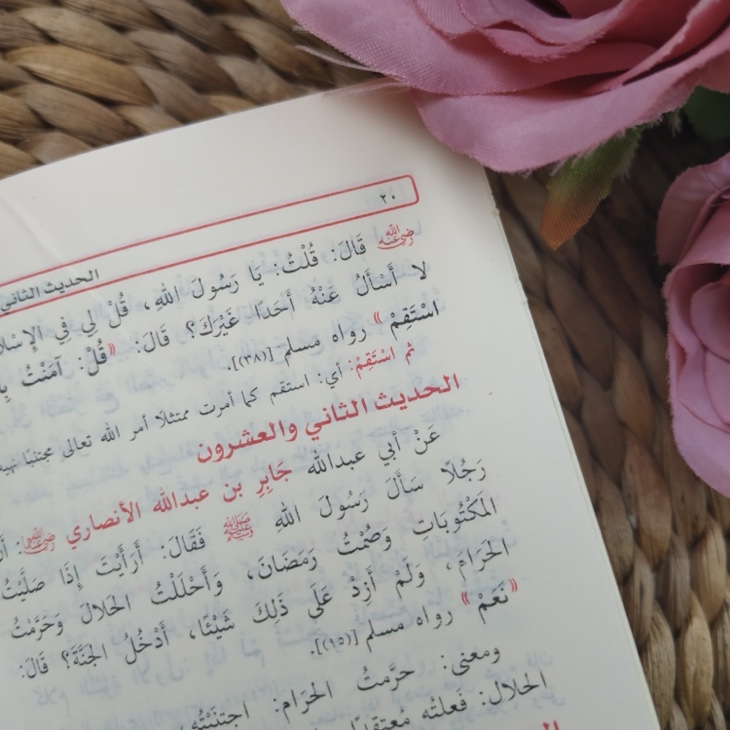 ٢٠
الحديث الثاني
ﷺ قَالَ: قُلْتُ: يَا رَسُولَ اللهِ، قُلْ لِي فِي
لا أَسْأَلُ عَنْهُ أَحَدًا غَيْرَكَ؟ قَالَ: «قُلْ: آمَنْتُ
اسْتَقِمْ» رواه مسلم [(٣٨)].
ثم اسْتَقِمْ: أي: استقم كما أمرت ممتثلًا أمر الله تعالى مجتنبًا نهيه
الحديث الثاني والعشرون
عَنْ أبي عبدالله جَابِرِ بن عبدالله الأنصاري رضي الله عنهما:
رَجُلًا سَأَلَ رَسُولَ اللهِ ﷺ فَقَالَ: أَرَأَيْتَ إِذَا صَلَّيْتُ
المَكْتُوبَاتِ وَصُمْتُ رَمَضَانَ، وَأَحْلَلْتُ الحَلالَ وَحَرَّمْتُ
الحَرَامَ، وَلَمْ أَزِدْ عَلَى ذَلِكَ شَيْئًا، أَدْخُلُ الجَنَّةَ؟ قَالَ:
«نَعَمْ» رواه مسلم [(١٥)].
ومعنى: حرَّمتُ الحَرَام: اجتنبْتُه
الحلال: فَعلتُه مُعتقِدًا